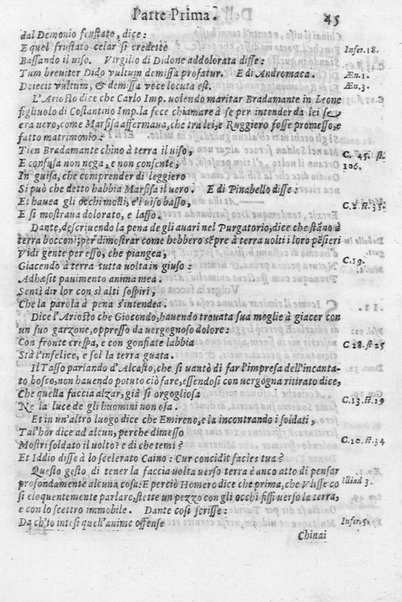 Parte Prima. 45
dal Demonio frustato, dice:
E quel frustato celar si credette Infer. 18.
Bassando il uiso. Virgilio di Didone addolorata disse:
Tum breuiter Dido vultum demissa profatur. E di Andromaca. Æn. 1.
Deiecit vultum, & demissa voce locuta est. Æn. 3.
L'Ariosto dice che Carlo Imp. uolendo maritar Bradamante in Leone
figliuolo di Costantino Imp. la fece chiamare à se per intender da lei se
era uero, come Marfisa affermaua, che tra lei, e Ruggiero fosse promesso, e
fatto matrimonio.
Tien Bradamante chino à terra il uiso, C. 45. st.
E confusa non nega, e non consente, 106.
In guisa, che comprender di leggiero
Si può che detto habbia Marfisa il uero. E di Pinabello disse:
Et hauea gli occhi molli, e'l uiso basso, C. 2. st. 35.
E si mostraua dolorato, e lasso.
Dante, descriuendo la pena de gli auari nel Purgatorio, dice che stāno à
terra bocconi: per dimostrar come hebbero sēpre à terra uolti i loro pēsieri
Vidi gente per esso, che piangea, C. 19.
Giacendo à terra tutta uolta in giuso:
Adhæsit pauimento anima mea.
Sentì dir lor con sì alti sospiri,
Che la parola à pena s'intendea.
Dice l'Ariosto che Giocondo, hauendo trouata sua moglie à giacer con
un suo garzone, oppresso da uergognoso dolore:
Con fronte crespa, e con gonfiate labbia C. 28. st 25
Stà l'infelice, e sol la terra guata.
Il Tasso parlando d'Alcasto, che si uantò di far l'impresa dell'incanta-
to bosco, non hauendo potuto ciò fare, essendosi con uergogna ritirato dice,
Che quella faccia alzar, già sì orgogliosa C. 13. st. 29
Ne la luce de gli huomini non osa.
Et in un'altro luogo che Emireno, e la incontrando i soldati,
Tal'hor dice ad alcun, perche dimesso
Mostri soldato il uolto? e di che temi? C. 20. st. 34
Et Iddio disse à lo scelerato Caino: Cur concidit facies tua?
Questo gesto di tener la faccia uolta uerso terra è anco atto di pensar
profondamente alcuna cosa: E perciò Homero dice che prima, che Vlisse co Iliad 3.
sì eloquentemente parlare, stette un pezzo con gli occhi fissi uerso la terra,
e con lo scettro immobile. Dante così scrisse:
Da ch'io intesi quell'anime offense Infer. 5.
Chinai